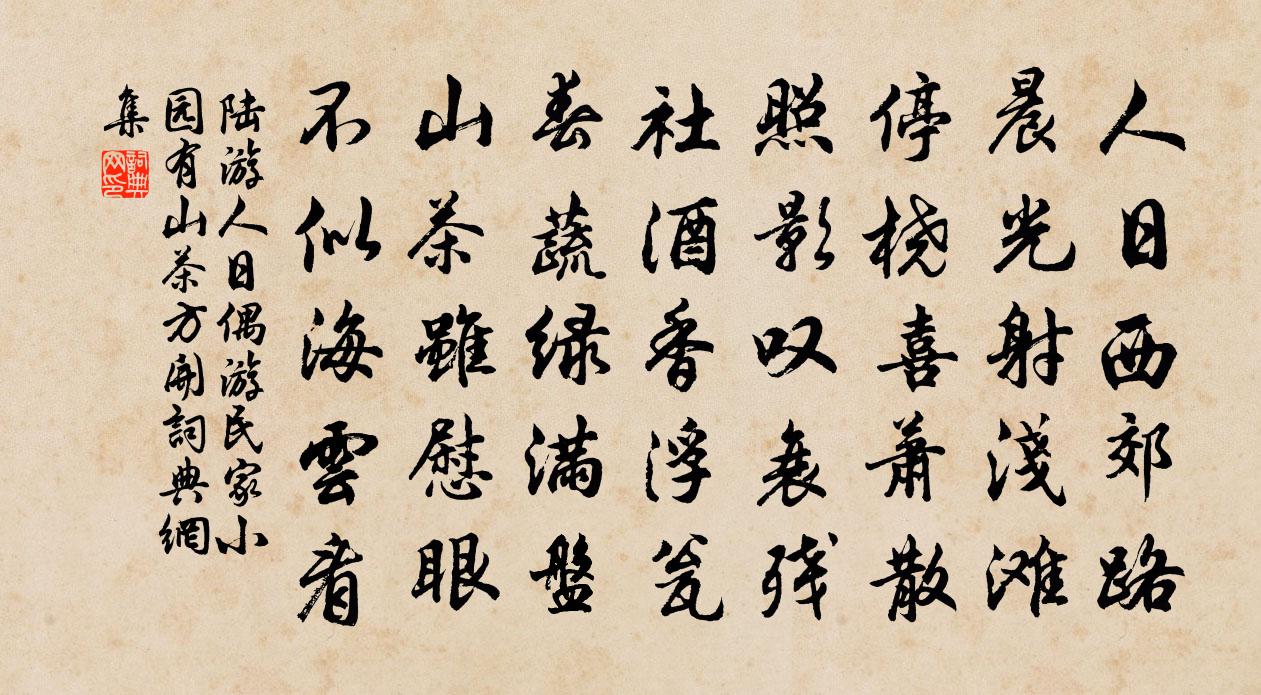 人日西郊路
晨光射淺滩
停桡喜萧散
照影叹衰残
社酒香浮瓮
春蔬绿满盤
山茶雖慰眼
不似海雲看
陆游人日偶游民家小
园有山茶方開詞典網
集
詞典网印